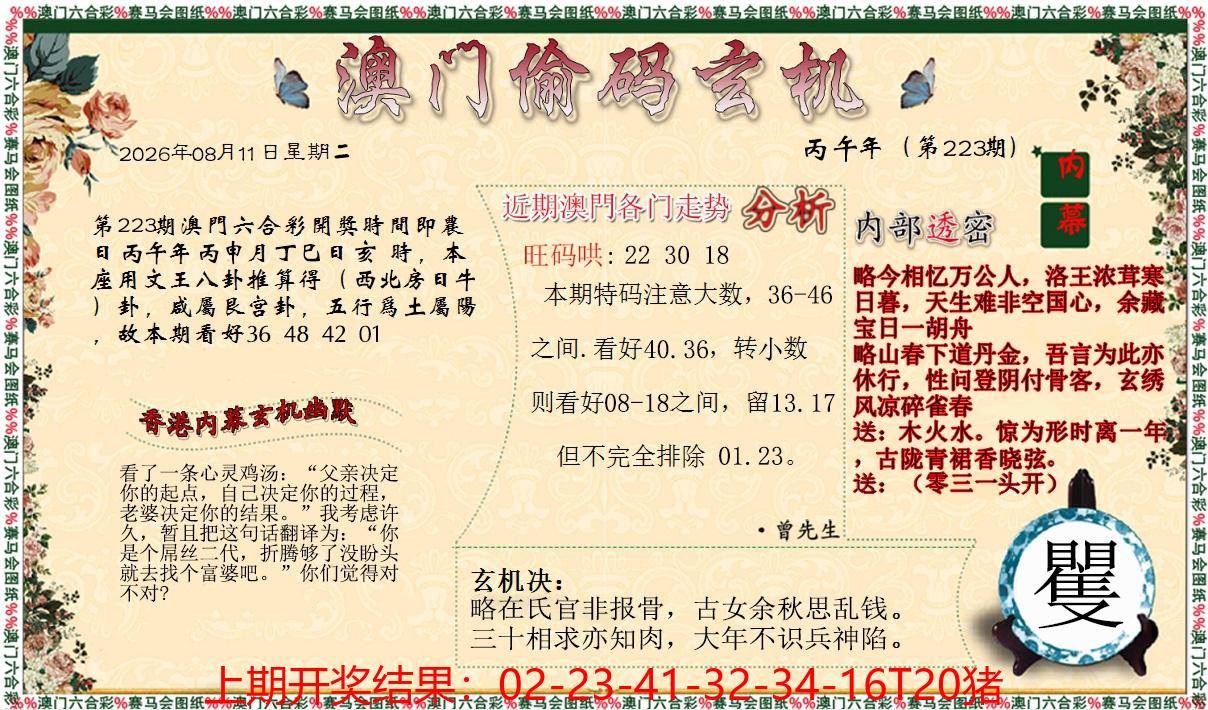 %%澳门六合彩%赛马会图纸%%澳门六合彩%赛马会图纸%%澳门六合彩%赛马会图纸%%澳门六合彩%赛马会图纸%%澳门六合彩%赛马会图纸%%澳门六合彩%赛马会图纸%%
澳门偷码玄机
2026年08月11日星期二
丙午年（第223期）
内幕
第223期澳門六合彩開獎時間即農
日丙午年丙申月丁巳日亥 時，本
座用文王八卦推算得（西北房日牛
）卦，咸屬艮宫卦，五行爲土屬陽
，故本期看好36 48 42 01
香港内幕玄机幽默
看了一条心灵鸡汤：“父亲决定
你的起点，自己决定你的过程，
老婆决定你的结果。”我考虑许
久，暂且把这句话翻译为：“你
是个屌丝二代，折腾够了没盼头
就去找个富婆吧。”你们觉得对
不对？
近期澳門各门走势 分析
旺码哄: 22 30 18
本期特码注意大数，36-46
之间.看好40.36，转小数
则看好08-18之间，留13.17
但不完全排除 01.23。
·曾先生
内部透密
略今相忆万公人，洛王浓茸寒
日暮，天生难非空国心，余藏
宝日一胡舟
略山春下道丹金，吾言为此亦
休行，性问登阴付骨客，玄绣
风凉碎雀春
送：木火水。惊为形时离一年
，古陇青裙香晓弦。
送：（零三一头开）
玄机决：
略在氏官非报骨，古女余秋思乱钱。
三十相求亦知肉，大年不识兵神陷。
矍
上期开奖结果：02-23-41-32-34-16T20猪